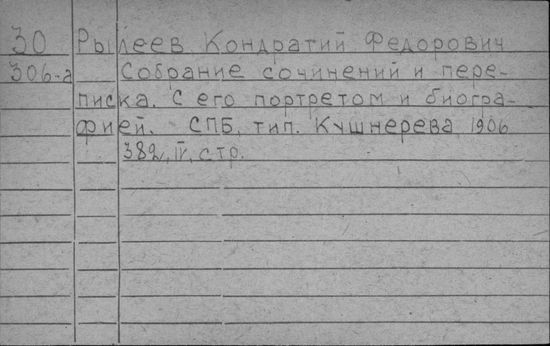 30 Рылеев Кондратий Федорович
306-а Собрание сочинений и пере-
писка. С его портретом и биогра-
фией. СПБ, тип. Кушнерева, 1906
382, IV, стр.